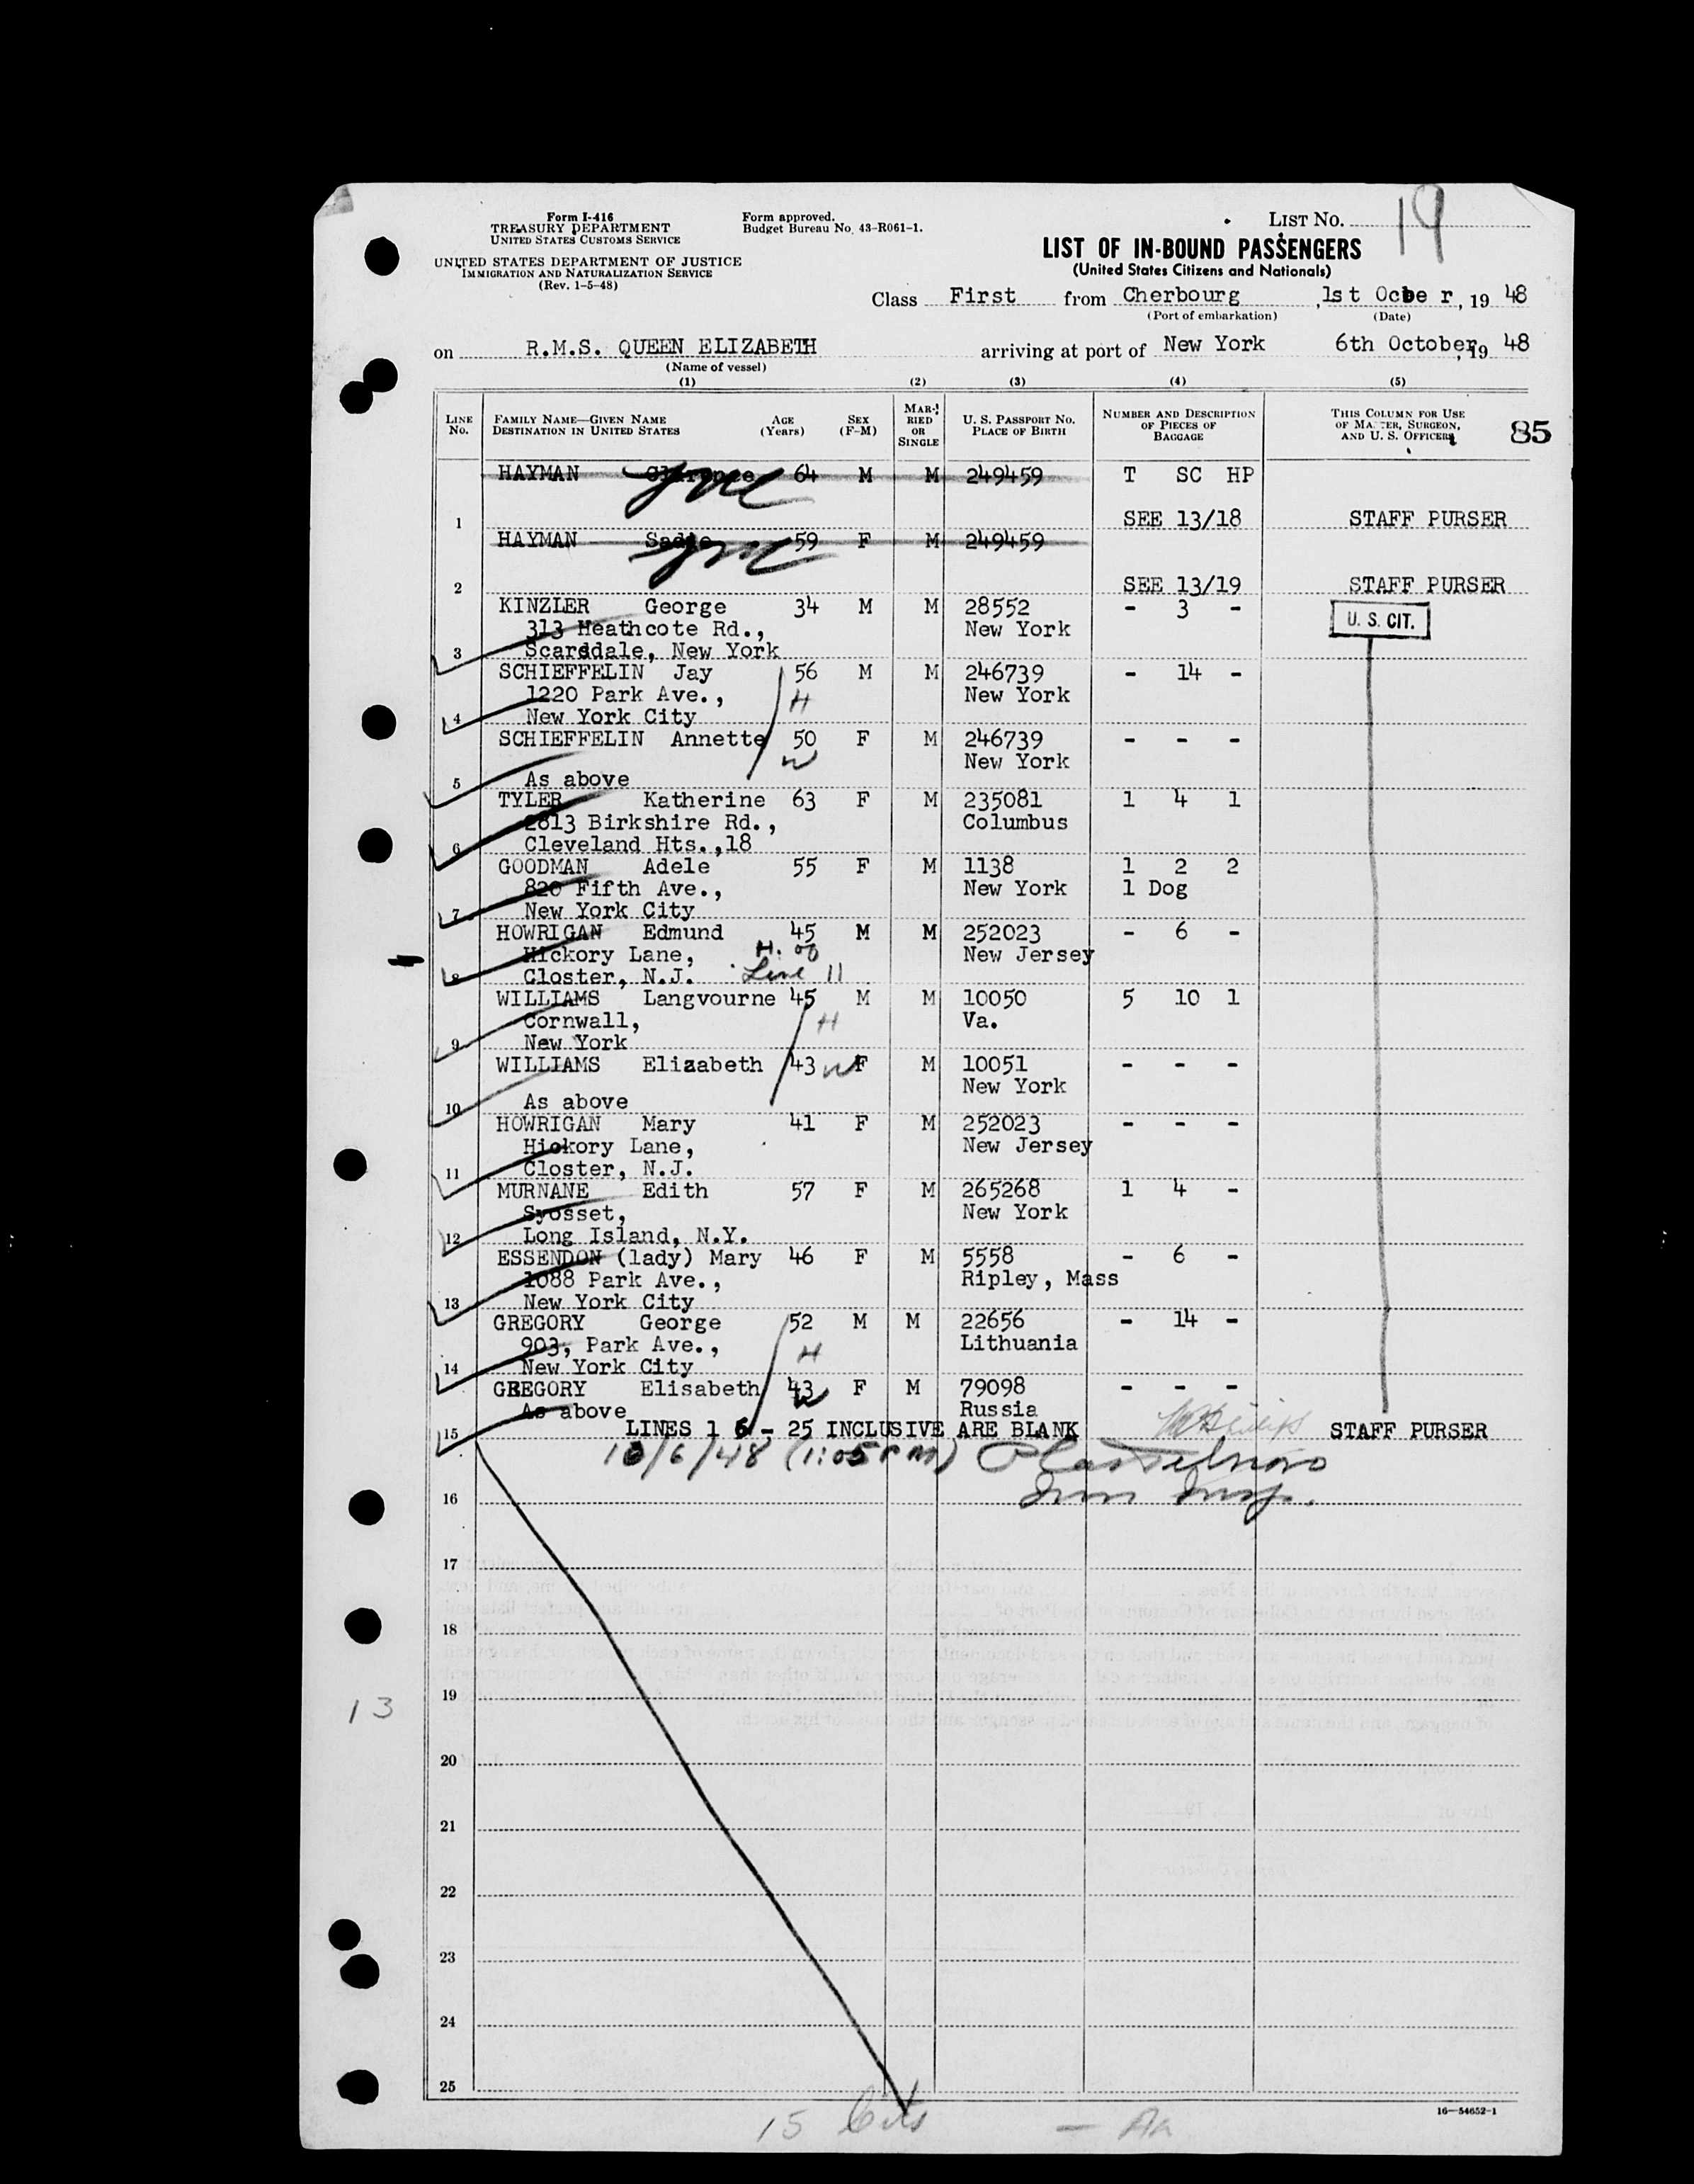 Form I-416
TREASURY DEPARTMENT
UNITED STATES CUSTOMS SERVICE
UNITED STATES DEPARTMENT OF JUSTICE
IMMIGRATION AND NATURALIZATION SERVICE
(Rev. 1-5-48)
Form approved.
Budget Bureau No. 43-R061-1.
LIST NO. 19
LIST OF IN-BOUND PASSENGERS
(United States Citizens and Nationals)
Class First from Cherbourg, 1st Ocbe r, 19 48
(Port of embarkation) (Date)
on R.M.S. QUEEN ELIZABETH arriving at port of New York 6th October, 19 48
(Name of vessel)
(1) (2) (3) (4) (5)
LINE No. FAMILY NAME—GIVEN NAME DESTINATION IN UNITED STATES AGE (Years) SEX (F-M) MARRIED OR SINGLE U. S. PASSPORT NO. PLACE OF BIRTH NUMBER AND DESCRIPTION OF PIECES OF BAGGAGE THIS COLUMN FOR USE OF MASTER, SURGEON, AND U. S. OFFICERS 85
HAYMAN Clarence 64 M M 249459 T SC HP
1 SEE 13/18 STAFF PURSER
HAYMAN Sadie 59 F M 249459
2 SEE 13/19 STAFF PURSER
KINZLER George 34 M M 28552 - 3 - U. S. CIT.
313 Heathcote Rd., New York
3 Scarsdale, New York
SCHIEFFELIN Jay 56 M M 246739 - 14 -
1220 Park Ave., H New York
4 New York City
SCHIEFFELIN Annette 50 F M 246739 - - -
W New York
5 As above
TYLER Katherine 63 F M 235081 1 4 1
2813 Birkshire Rd., Columbus
6 Cleveland Hts.,18
GOODMAN Adele 55 F M 1138 1 2 2
820 Fifth Ave., New York 1 Dog
7 New York City
HOWRIGAN Edmund 45 M M 252023 - 6 -
Hickory Lane, H. of New Jersey
8 Closter, N.J. Line 11
WILLIAMS Langvourne 45 M M 10050 5 10 1
Cornwall, H Va.
9 New York
WILLIAMS Elizabeth 43 W F M 10051 - - -
New York
10 As above
HOWRIGAN Mary 41 F M 252023 - - -
Hickory Lane, New Jersey
11 Closter, N.J.
MURNANE Edith 57 F M 265268 1 4 -
Syosset, New York
12 Long Island, N.Y.
ESSENDON (lady) Mary 46 F M 5558 - 6 -
1088 Park Ave., Ripley, Mass
13 New York City
GREGORY George 52 M M 22656 - 14 -
903, Park Ave., H Lithuania
14 New York City
GREGORY Elisabeth 43 W F M 79098 - - -
As above Russia
15 LINES 1 6 - 25 INCLUSIVE ARE BLANK STAFF PURSER
10/6/48 (1:05 PM)
16 Imm Insp.
17
18
19
13
20
21
22
23
24
25
16—54652-1
15 Cits